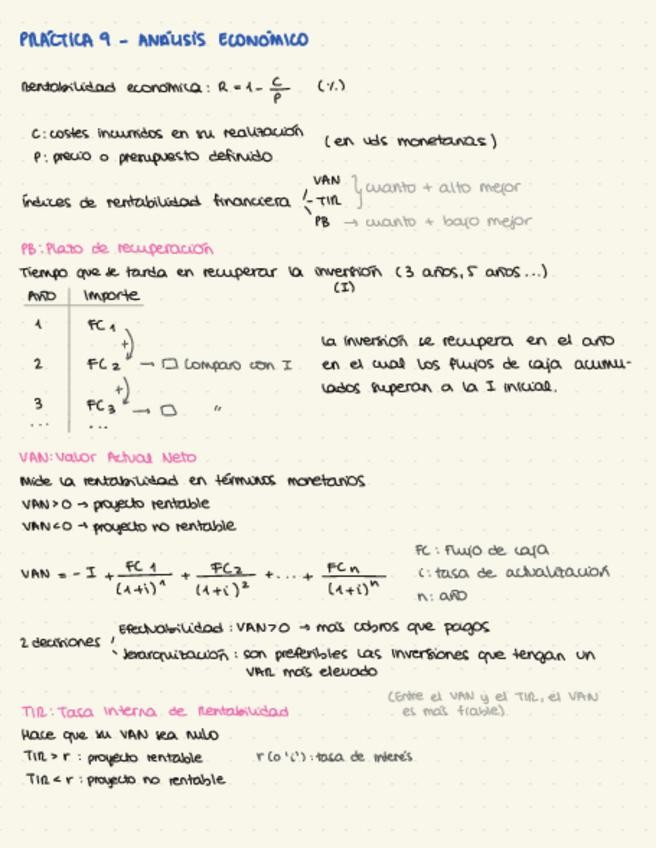 PRÁCTICA 9 - ANÁLISIS ECONÓMICO
Rentabilidad económica: R = 1 - C/P (%)
C: costes incurridos en su realización
(en uds monetarias)
P: precio o presupuesto definido
Índices de rentabilidad financiera
VAN
TIR
cuanto + alto mejor
PB → cuanto + bajo mejor
PB: Plazo de recuperación
Tiempo que se tarda en recuperar la inversión (3 años, 5 años...)
(I)
AÑO Importe
1 FC1
+
2 FC2 → □ Comparo con I
+
3 FC3 → □ "
... ...
La inversión se recupera en el año
en el cual los flujos de caja acumu-
lados superan a la I inicial.
VAN: Valor Actual Neto
Mide la rentabilidad en términos monetarios
VAN > 0 → proyecto rentable
VAN < 0 → proyecto no rentable
VAN = - I + FC1/(1+i)^1 + FC2/(1+i)^2 + ... + FCn/(1+i)^n
FC: flujo de caja
i: tasa de actualización
n: año
2 decisiones
Efectuabilidad: VAN > 0 → más cobros que pagos
Jerarquización: son preferibles las inversiones que tengan un
VAN más elevado
(Entre el VAN y el TIR, el VAN
es más fiable).
TIR: Tasa Interna de Rentabilidad
Hace que su VAN sea nulo
TIR > r : proyecto rentable
r (o 'i'): tasa de interés
TIR < r : proyecto no rentable